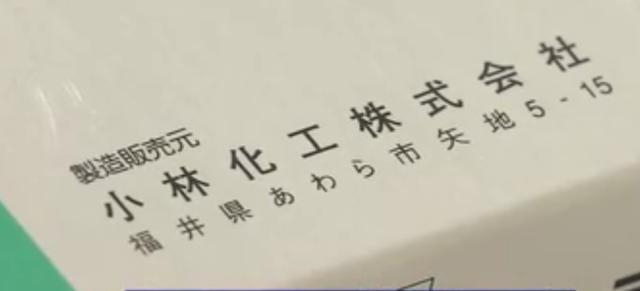 製造販売元
小林化工株式会社
福井県あわら市矢地5-15